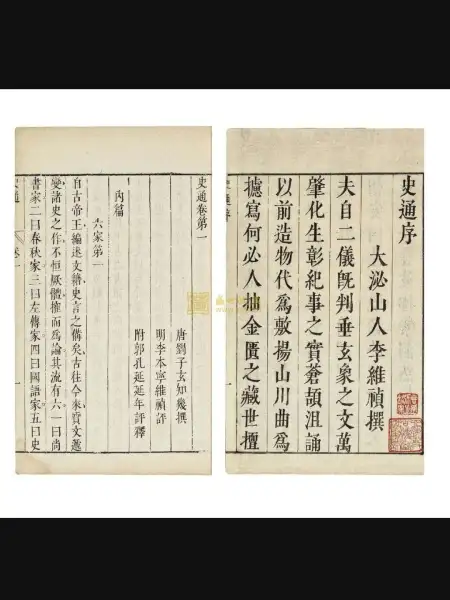 史通序
大泌山人李維禎撰
夫自二儀旣判垂玄象之文萬
肇化生彰紀事之實蒼頡沮誦
以前造物代爲敷揚山川曲爲
攄寫何必人抽金匱之藏世擅
史通卷第一
唐劉子玄知幾撰
明李本寧維禎評
附郭孔延延年評釋
內篇
六家第一
自古帝王編述文籍史言之備矣古往今來質文遞
變諸史之作不恒厥體搉而爲論其流有六一曰尚
書家二曰春秋家三曰左傳家四曰國語家五曰史